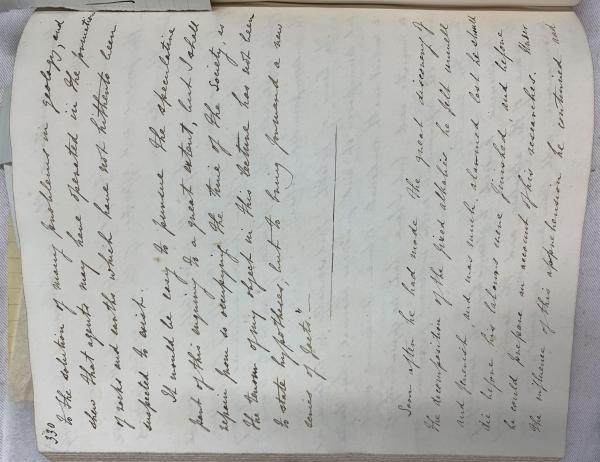 330
to the solution of many problems in geology, and
shew that agents may have operated in the formation
of rocks and earths which have not hitherto been
suspected to exist.
It would be easy to pursue the speculative
part of this enquiry to a great extent, but I shall
refrain from so occupying the time of the Society, as
the tenour of my object in this lecture has not been
to state hypotheses, but to bring forward a new
series of facts.—
Soon after he had made the great discovery of
the decomposition of the fixed alkalis he fell unwell
and feverish, and was much alarmed lest he should
die before his labours were finished and before
he could prepare an account of his researches. Under
the influence of this apprehension he continued not